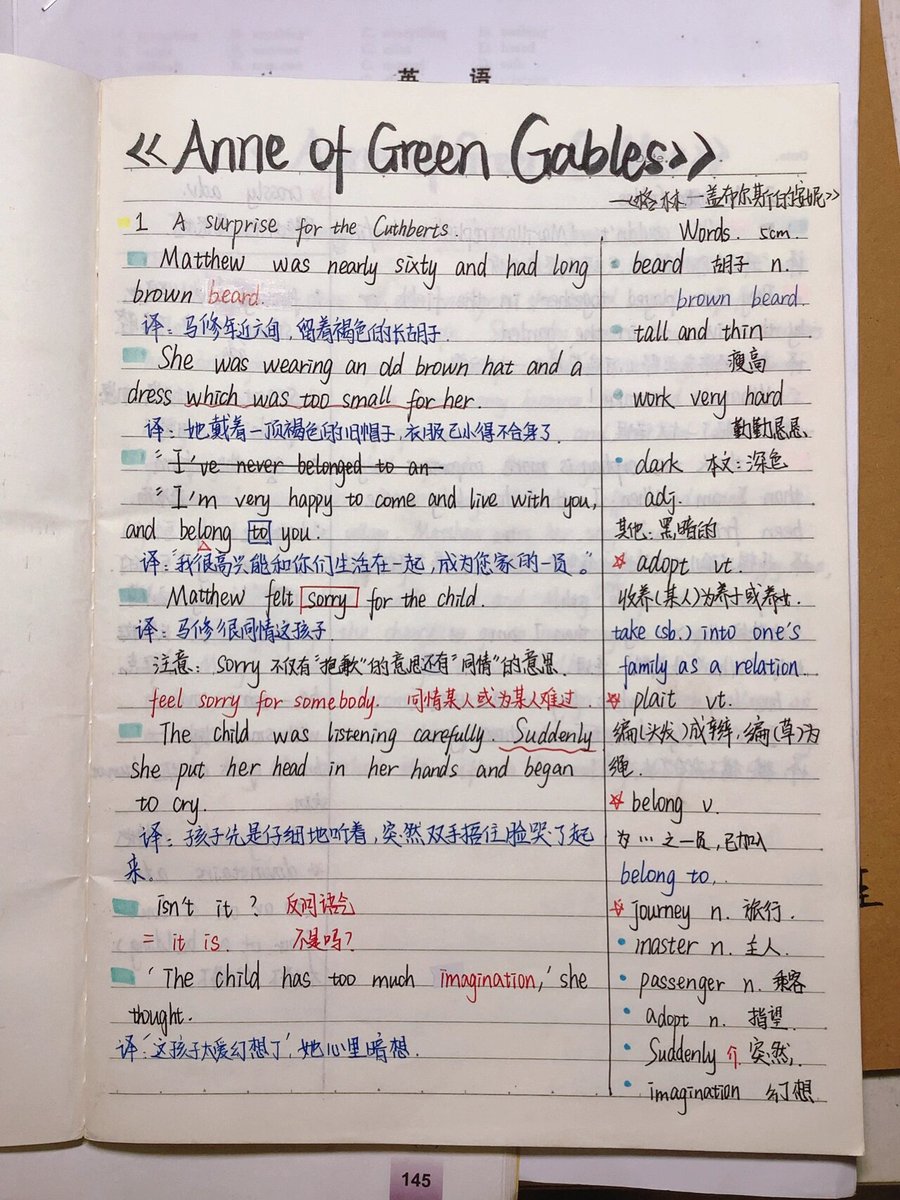 英 语
<< Anne of Green Gables>>
—《格林-盖布尔斯的安妮》
1 A surprise for the Cuthberts.
Matthew was nearly sixty and had long
brown beard.
译：马修年近六旬，留着褐色的长胡子.
She was wearing an old brown hat and a
dress which was too small for her.
译：她戴着一顶褐色的旧帽子，衣服已小得不合身了.
" I've never belonged to an
"I'm very happy to come and live with you,
and belong to you.
译："我很高兴能和你们生活在一起，成为您家的一员。"
Matthew felt sorry for the child.
译：马修很同情这孩子.
注意：sorry 不仅有"抱歉"的意思还有"同情"的意思.
feel sorry for somebody. 同情某人或为某人难过.
The child was listening carefully Suddenly
she put her head in her hands and began
to cry.
译：孩子先是仔细地听着，突然双手捂住脸哭了起
来。
isn't it ? 反问语气
= it is 不是吗?
' The child has too much imagination,' she
thought.
译：'这孩子太爱幻想了'，她心里暗想.
Words. 5cm.
beard 胡子 n.
brown beard.
tall and thin
瘦高
work very hard
勤勤恳恳
dark 本文：深色
adj.
其他：黑暗的
adopt vt.
收养(某人)为养子或养女.
take (sb.) into one's
family as a relation.
plait vt.
编(头发)成辫，编(草)为
绳.
belong v.
为…之一员，已加入
belong to..
journey n. 旅行.
master n. 主人.
passenger n. 乘客
adopt n. 指望.
Suddenly 介 突然.
imagination 幻想
145